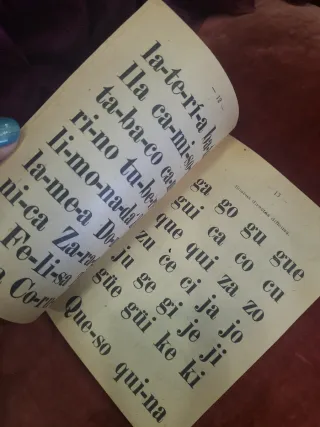 — 12 —
la-te-rí-a
lla ca-mi-
ta-ba-co
ri-no tu-be
li-mo-na-da
la-me-a Do-
ni-ca Za-ra
Fe-li-sa
a Co-r
— 13 —
ga go gu gue
gui ca co cu
que qui za zo
zu ce ci ja jo
ju ge gi je ji
güe güi ke ki
Que-so qui-na